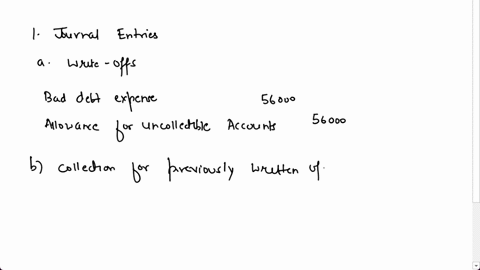 1. Journal Entries
a. Write-offs
Bad debt expense 56000
Allowance for uncollectible Accounts 56000
b) Collection for previously written of